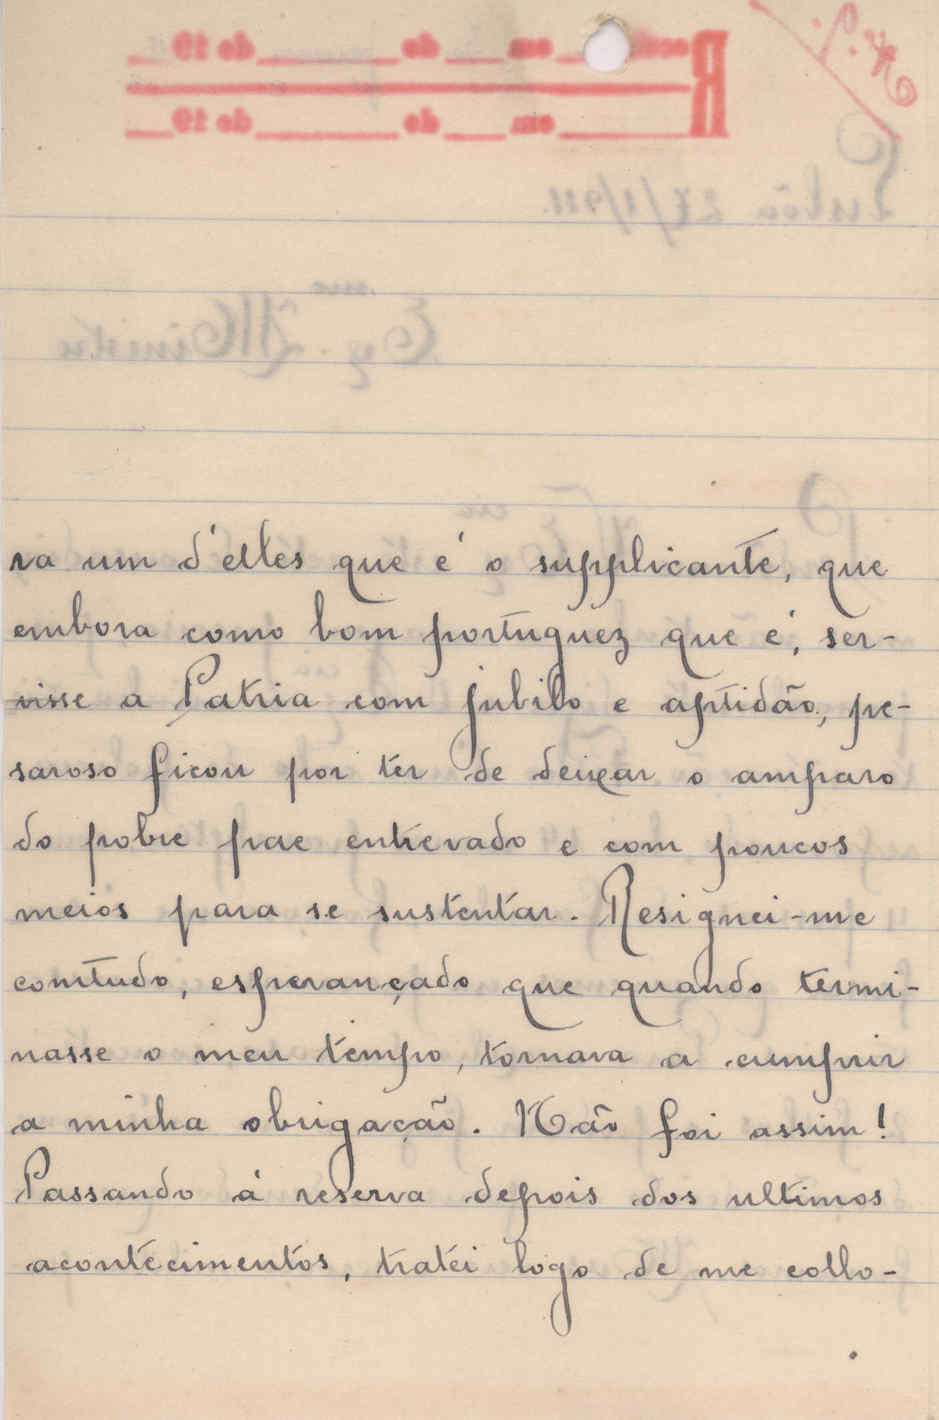 ra um d'elles que é o supplicante, que
embora como bom portuguez que é, ser-
visse a Patria com jubilo e aptidão, pe-
saroso ficou por ter de deixar o amparo
do pobre pae entrevado e com poucos
meios para se sustentar. Resignei-me
comtudo, esperançado que quando termi-
nasse o meu tempo, tornava a cumprir
a minha obrigação. Não foi assim!
Passando á reserva depois dos ultimos
acontecimentos, tratei logo de me collo-